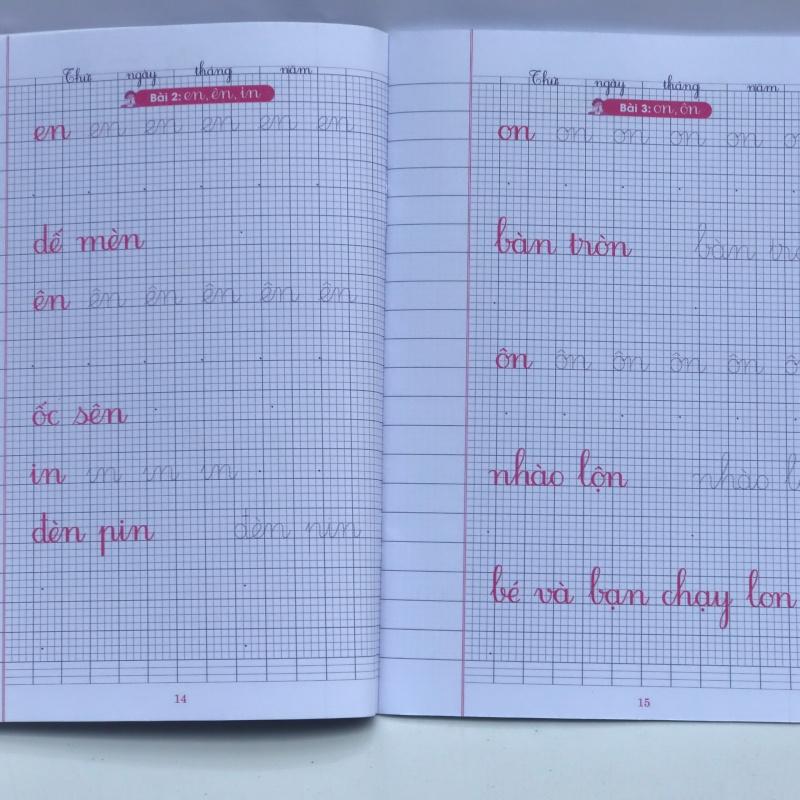 Thứ ngày tháng năm
Bài 2: en, ên, in
en en en en en en
dế mèn
ên ên ên ên ên ên
ốc sên
in in in in
đèn pin đèn
14
Thứ ngày tháng năm
Bài 3: on, ôn
on on on on on
bàn tròn bàn
ôn ôn ôn ôn ôn
nhào lộn nhào
bé và bạn chạy lon
15